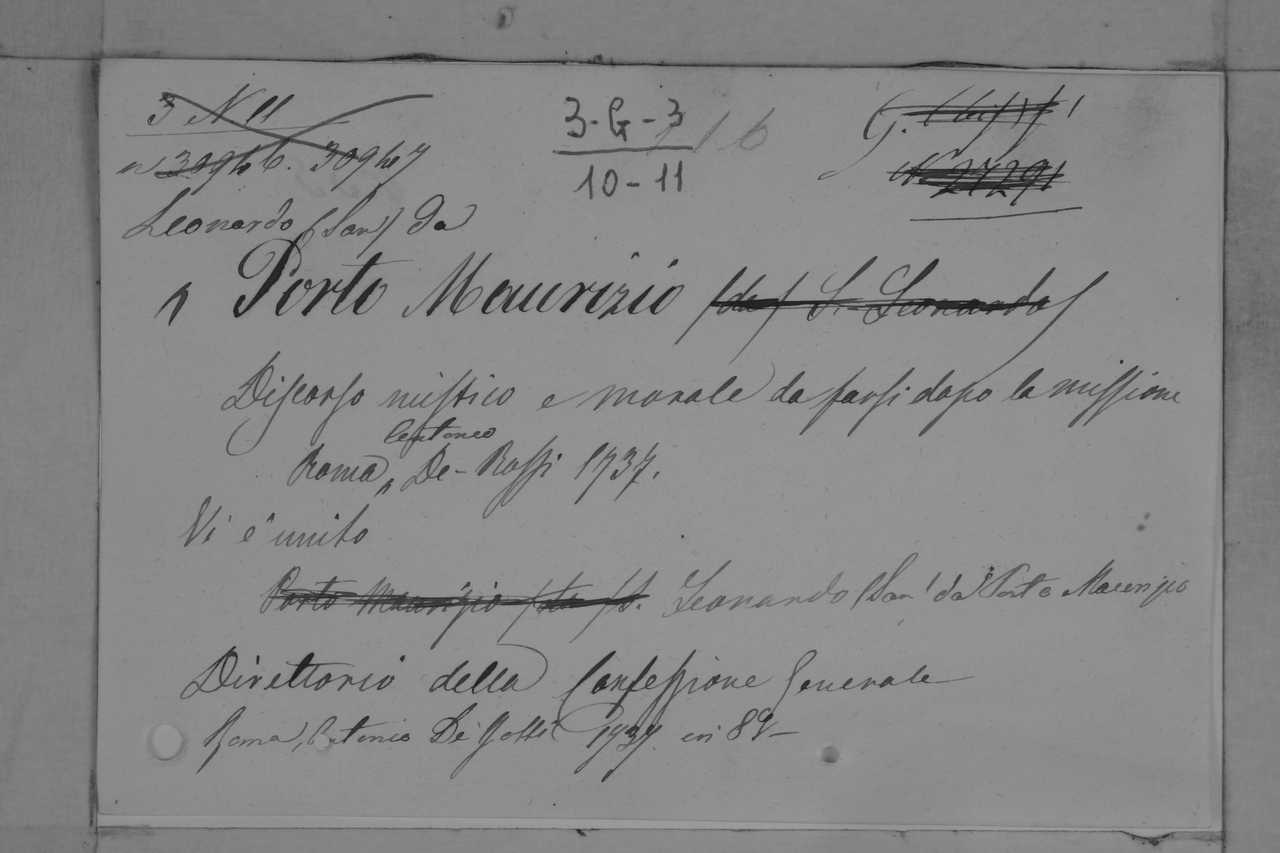 3 N 11
30946. 30947
3-G-3
10-11
116
G.
N. 27291
Leonardo (San) da
Porto Maurizio (da) S. Leonardo
Discorso mistico e morale da farsi dopo la missione
Antonio
Roma, De-Rossi 1737.
Vi è unito
Porto Maurizio (da) S. Leonardo (San) da Porto Maurizio
Direttorio della Confessione Generale
Roma, Antonio De Rossi 1737. in 8º-